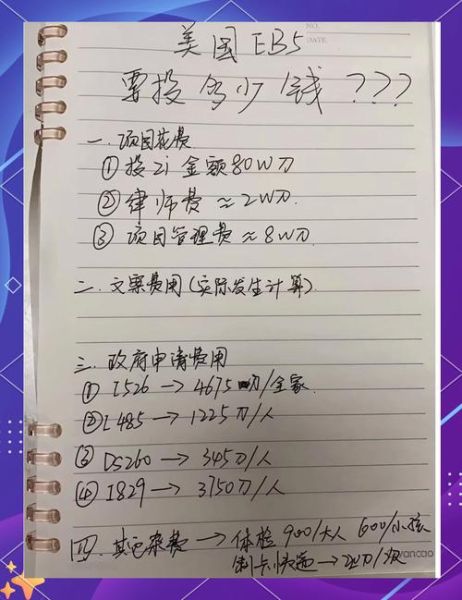 NO.
DATE
美国EB5
要投多少钱???
一.项目花费
①投zi金额80W刀
②律师费≈2W刀.
③项目管理费≈8W刀.
二.文案费用(实际发生计算)
三.政府申请费用
①I526→4675刀/全家
②I485→1225刀/人
③DS260→345刀/人
④I829→3750刀/人
四.其它杂费→体检900/大人 600/小孩
制卡